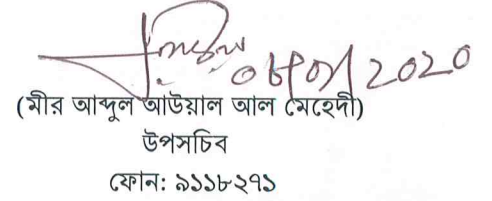 ০৮/০৭/2020
(মীর আব্দুল আউয়াল আল মেহেদী)
উপসচিব
ফোন: ৯১১৮২৭১